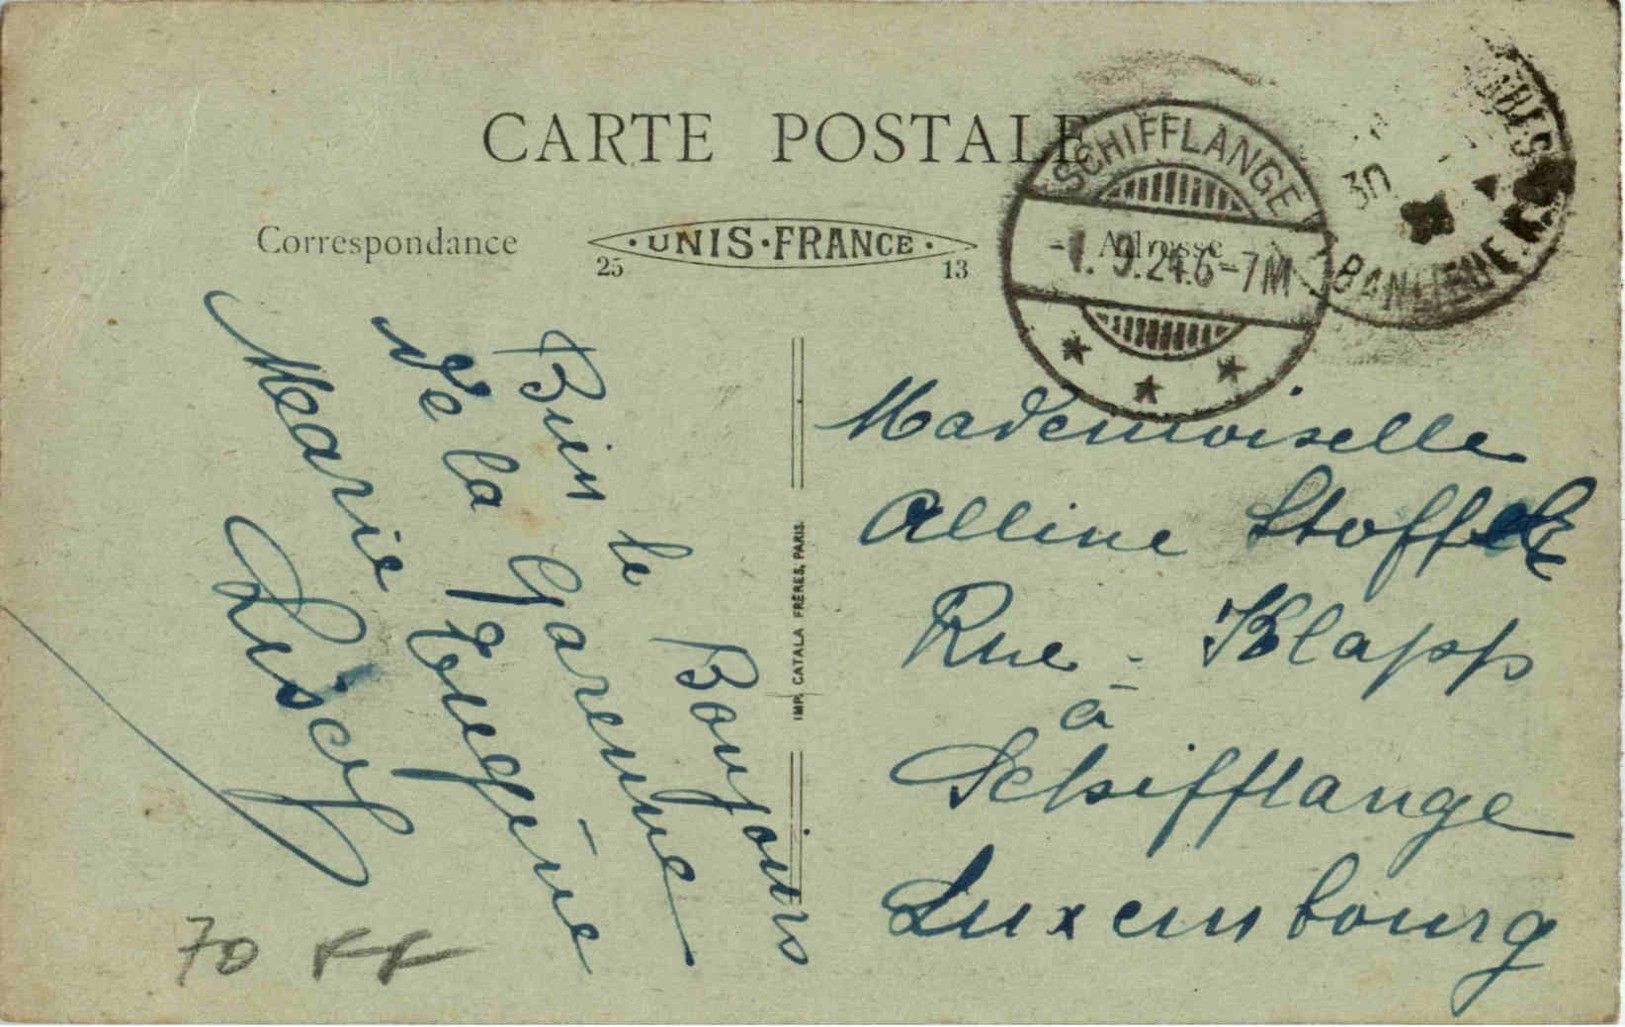 CARTE POSTALE
Correspondance
UNIS-FRANCE
25 13
Adresse
SCHIFFLANGE
-1. 9.24.6-7M
30
BANLIEUE
Bien le Bonjours
de la Garenne
Eugénie
Marie
IMP. CATALA FRÈRES, PARIS.
Mademoiselle
Alline Stoffel
Rue - Klapp
à
Schifflange
Luxembourg
70 FF